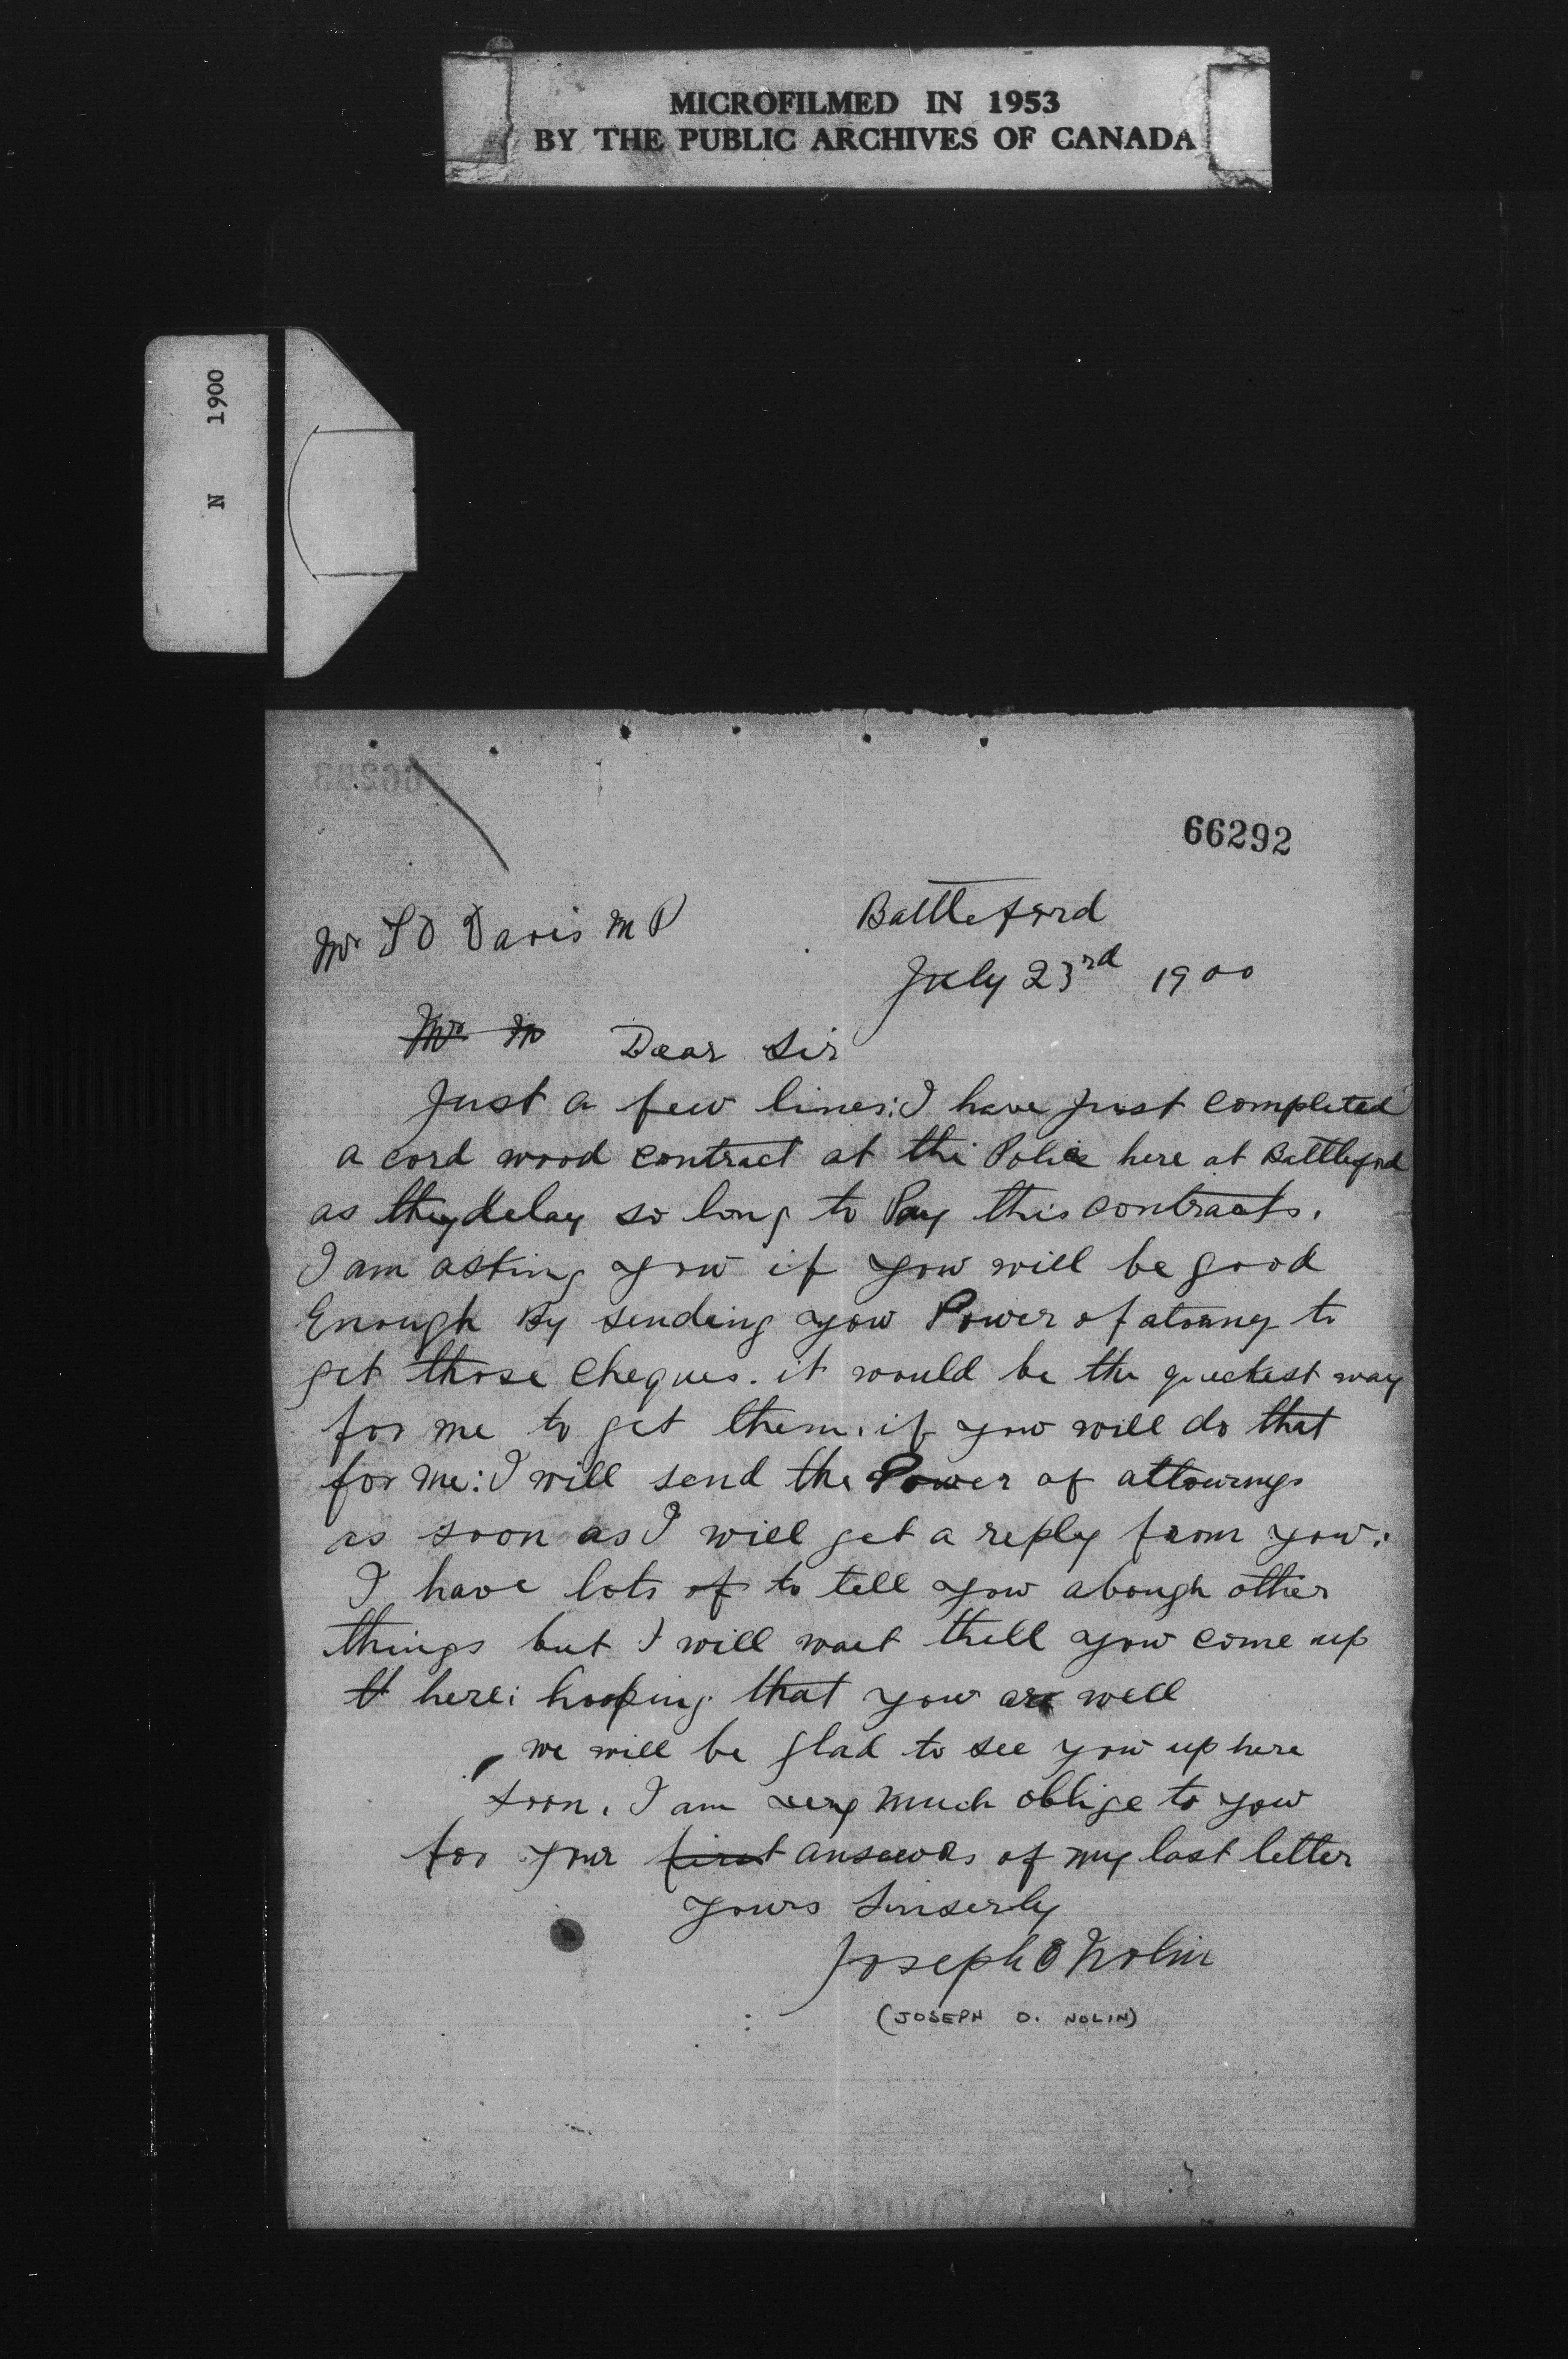 MICROFILMED IN 1953
BY THE PUBLIC ARCHIVES OF CANADA
N 1900
66292
Battleford
Mr T O Davis M P
July 23rd 1900
Mr M Dear Sir
Just a few lines: I have just completed
a cord wood contract at the Police here at Battleford
as they delay so long to Pay this contracts.
I am asking yow if yow will be good
Enough By sending yow Power of atorney to
get those cheques. it would be the quickest way
for me to get them. if yow will do that
for me: I will send the Power of attourneys
as soon as I will get a reply from yow:
I have lots of to tell yow abough other
things but I will wait thell yow come up
tt here: hooping that yow are well
we will be glad to see yow up here
soon. I am very much oblige to yow
for your first answers of my last letter
yours Sinserly
Joseph O Nolin
(JOSEPH O. NOLIN)